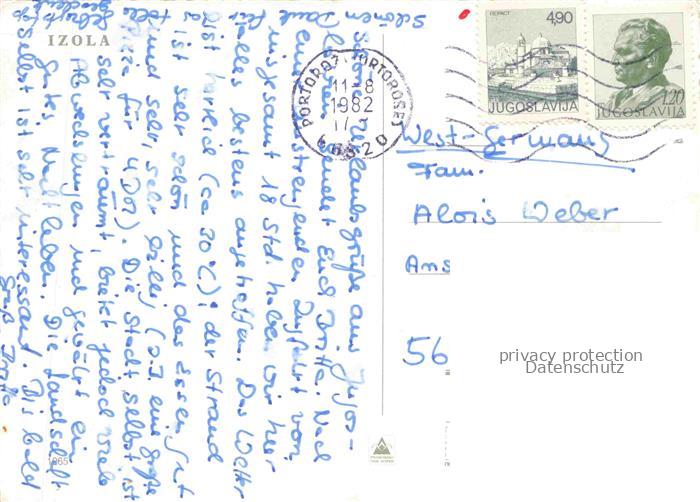 IZOLA
Schönen Dank für Geburtstags
Schöne Urlaubsgrüße aus Jugos-
lawien sendet Euch Jutta. Nach
einer anstrengenden Zugfahrt von
insgesamt 18 Std. haben wir hier
alles bestens angetroffen. Das Wetter
ist herrlich (ca 30°C); der Strand
ist sehr schön und das Essen gut
und sehr, sehr billig (z.B. eine große
Pizza für 4 DM). Die Stadt selbst ist
sehr verträumt, bietet jedoch viele
Abwechslungen und gewährt ein
gutes Nachtleben. Die Landschaft
selbst ist sehr interessant. Bis bald
Gruß Jutta
PORTOROŽ-PORTOROSE
11-8
1982
17
6 6320
ПЕРАСТ
4,90
JUGOSLAVIJA
1.20
JUGOSLAVIJA
West-Germany
Fam.
Alois Weber
Ams
56
privacy protection
Datenschutz